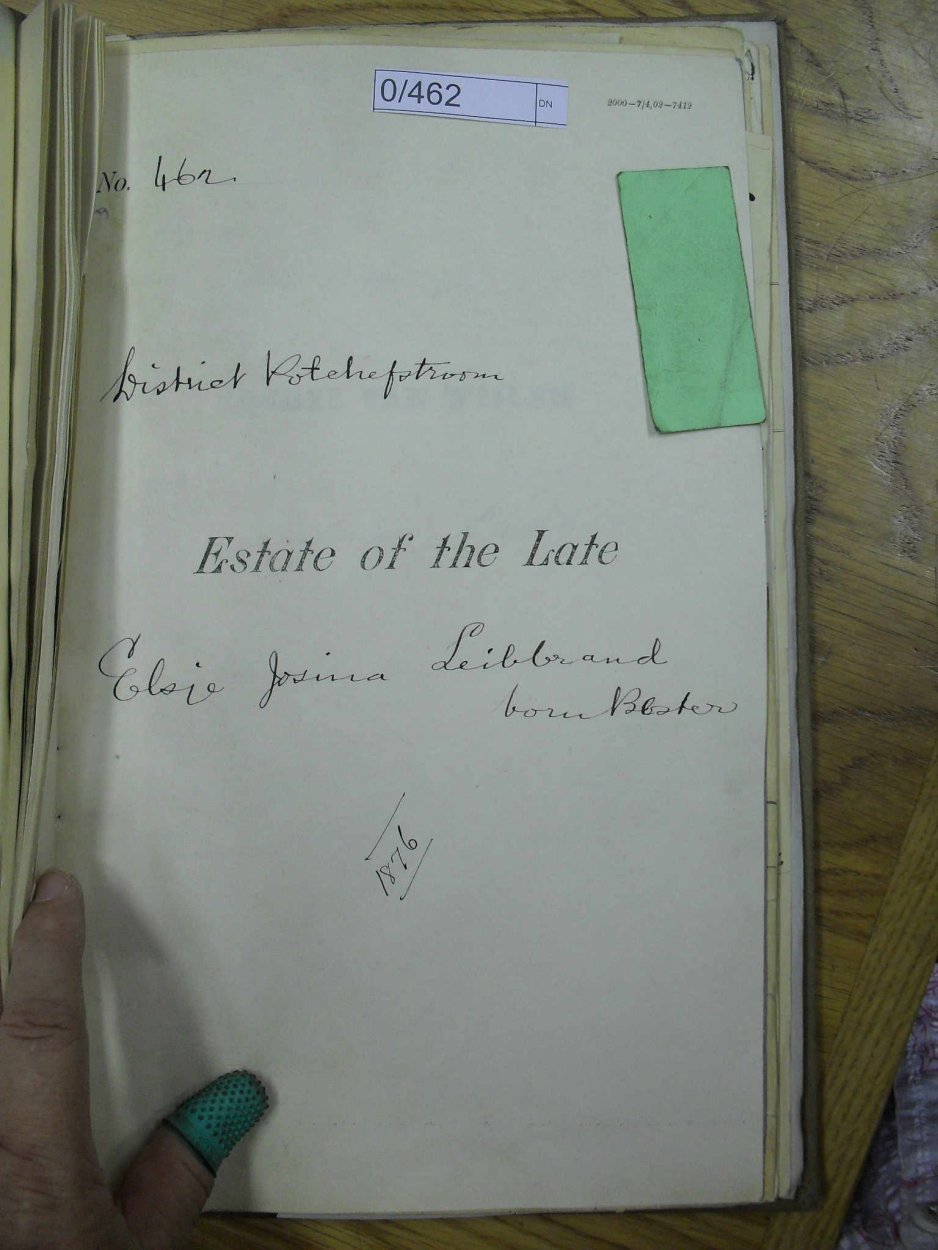 0/462 DN
2000—7/4,02—7412
No. 462.
District Potchefstroom
Estate of the Late
Elsje Josina Leibbrand
born Bester
1876